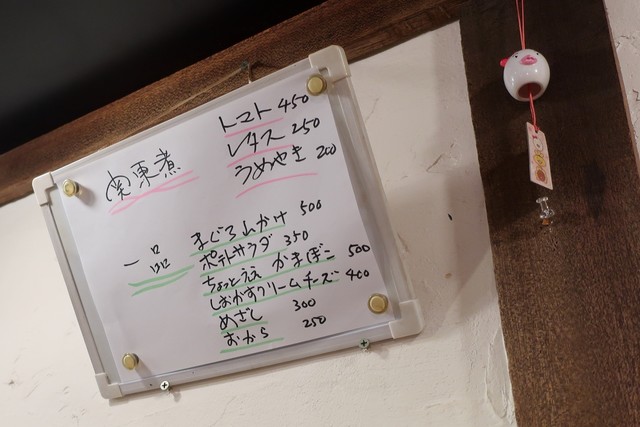 関東煮
トマト 450
レタス 250
うめやき 200
一品
まぐろ山かけ 500
ポテトサラダ 350
ちょっとええ かまぼこ 500
しおかすクリームチーズ 400
めざし 300
おから 250